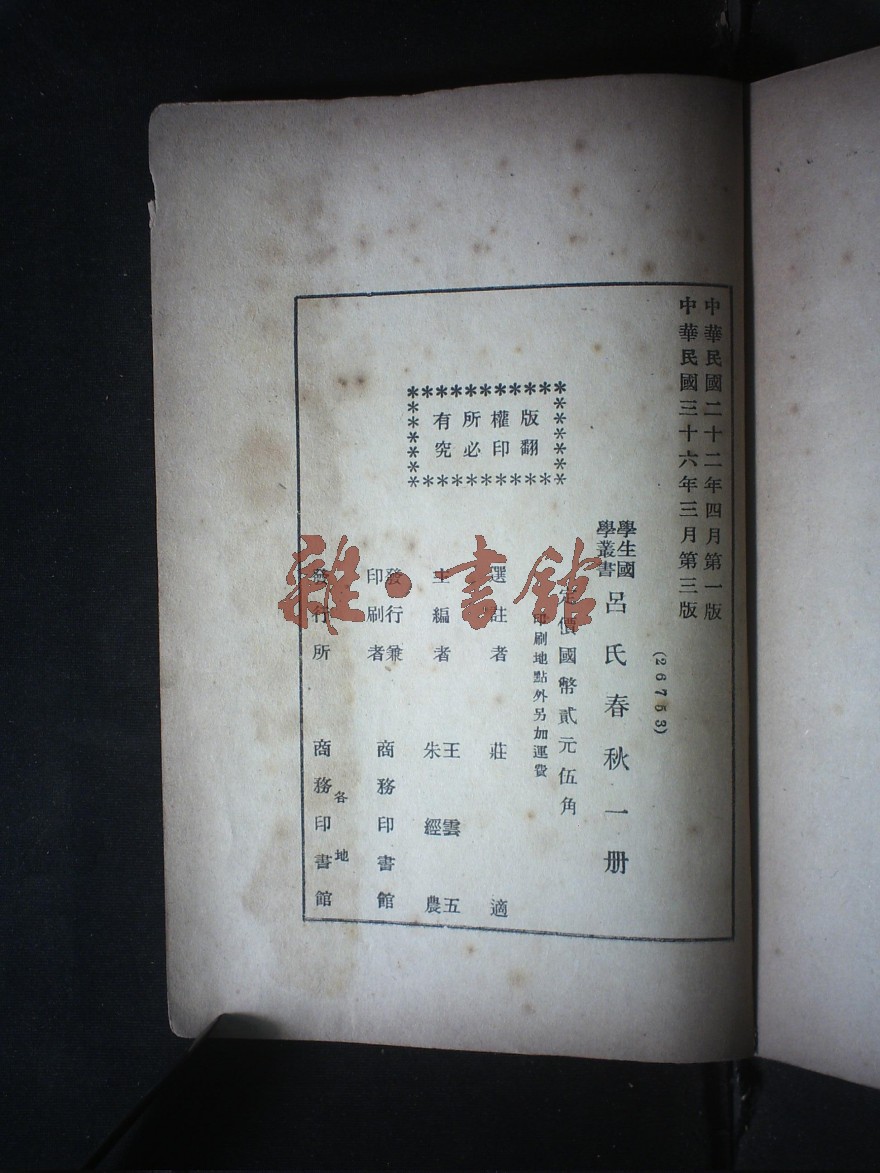 中華民國二十二年四月第一版
中華民國三十六年三月第三版
(26753)
學生國學叢書 呂氏春秋一册
定價國幣貳元伍角
印刷地點外另加運費
版權所有
翻印必究
選註者 莊適
主編者 王雲五
朱經農
發行兼印刷者 商務印書館
各地
發行所 商務印書館
雜·書館